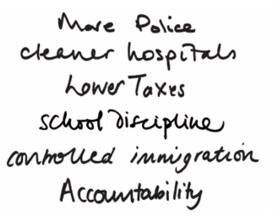 More Police
cleaner hospitals
Lower Taxes
school discipline
controlled immigration
Accountability